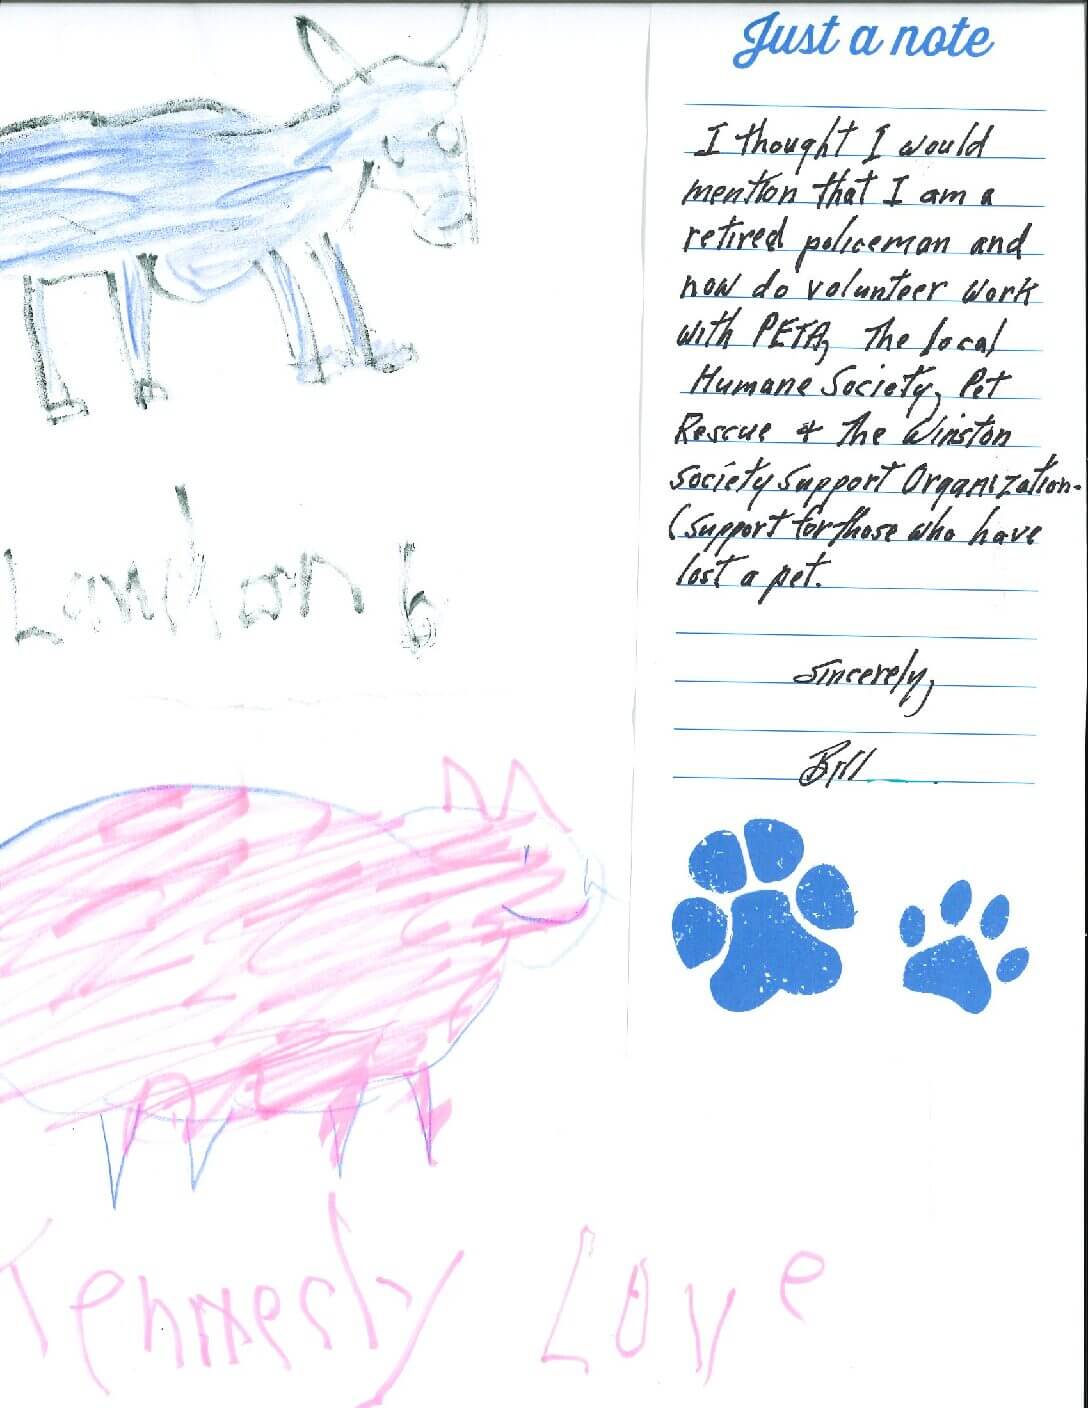 Just a note
I thought I would
mention that I am a
retired policeman and
now do volunteer work
with PETA, The local
Humane Society, Pet
Rescue & The Winston
Society Support Organization-
(support for those who have
lost a pet.
Sincerely,
Bill
Landon 6
Kennedy Love